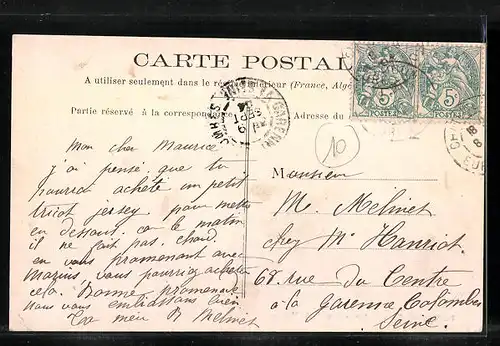 CARTE POSTAL
A utiliser seulement dans le ré érieur (France, Algé
Partie réservé à la correspondance
Adresse du
5 5
10
LA GARENN
Mon cher Maurice
j'ai pensé que tu
pourrais acheté un petit
tricot jersey pour mettre
en dessous. car le matin
il ne fait pas chaud
en vous promenant avec
Marius, vous pourriez acheter
cela. Bonne promenade
nous vous embrassons bien
Ta mère B Melinet
Monsieur
M. Melinet
chez Mr Hanriot
68. rue du Centre
à la Garenne Colombes
Seine.